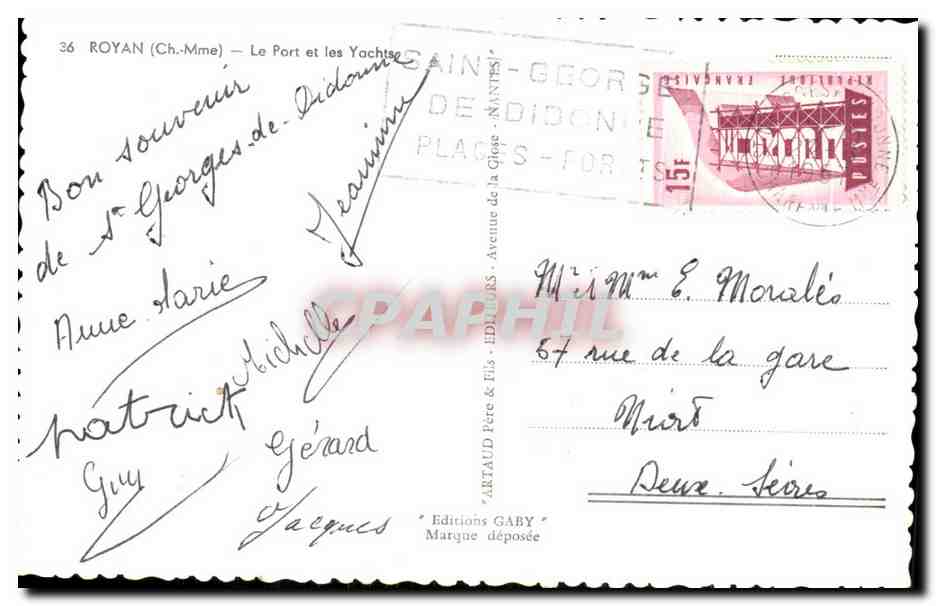 36 ROYAN (Ch.-Mme) — Le Port et les Yachts
Bon souvenir
de St Georges-de-Didonne
Jeannine
Anne-Marie
Michelle
patrick
Guy
Gérard
Jacques
"ARTAUD Père & Fils - EDITEURS - Avenue de la Close - NANTES"
" Editions GABY "
Marque déposée
SAINT-GEORGES
DE-DIDONNE
PLAGES-FORETS
REPUBLIQUE FRANÇAISE
15F
POSTES
CPAPHIL
Mr et Mme E. Moralés
57 rue de la gare
Niort
Deux-Sèvres